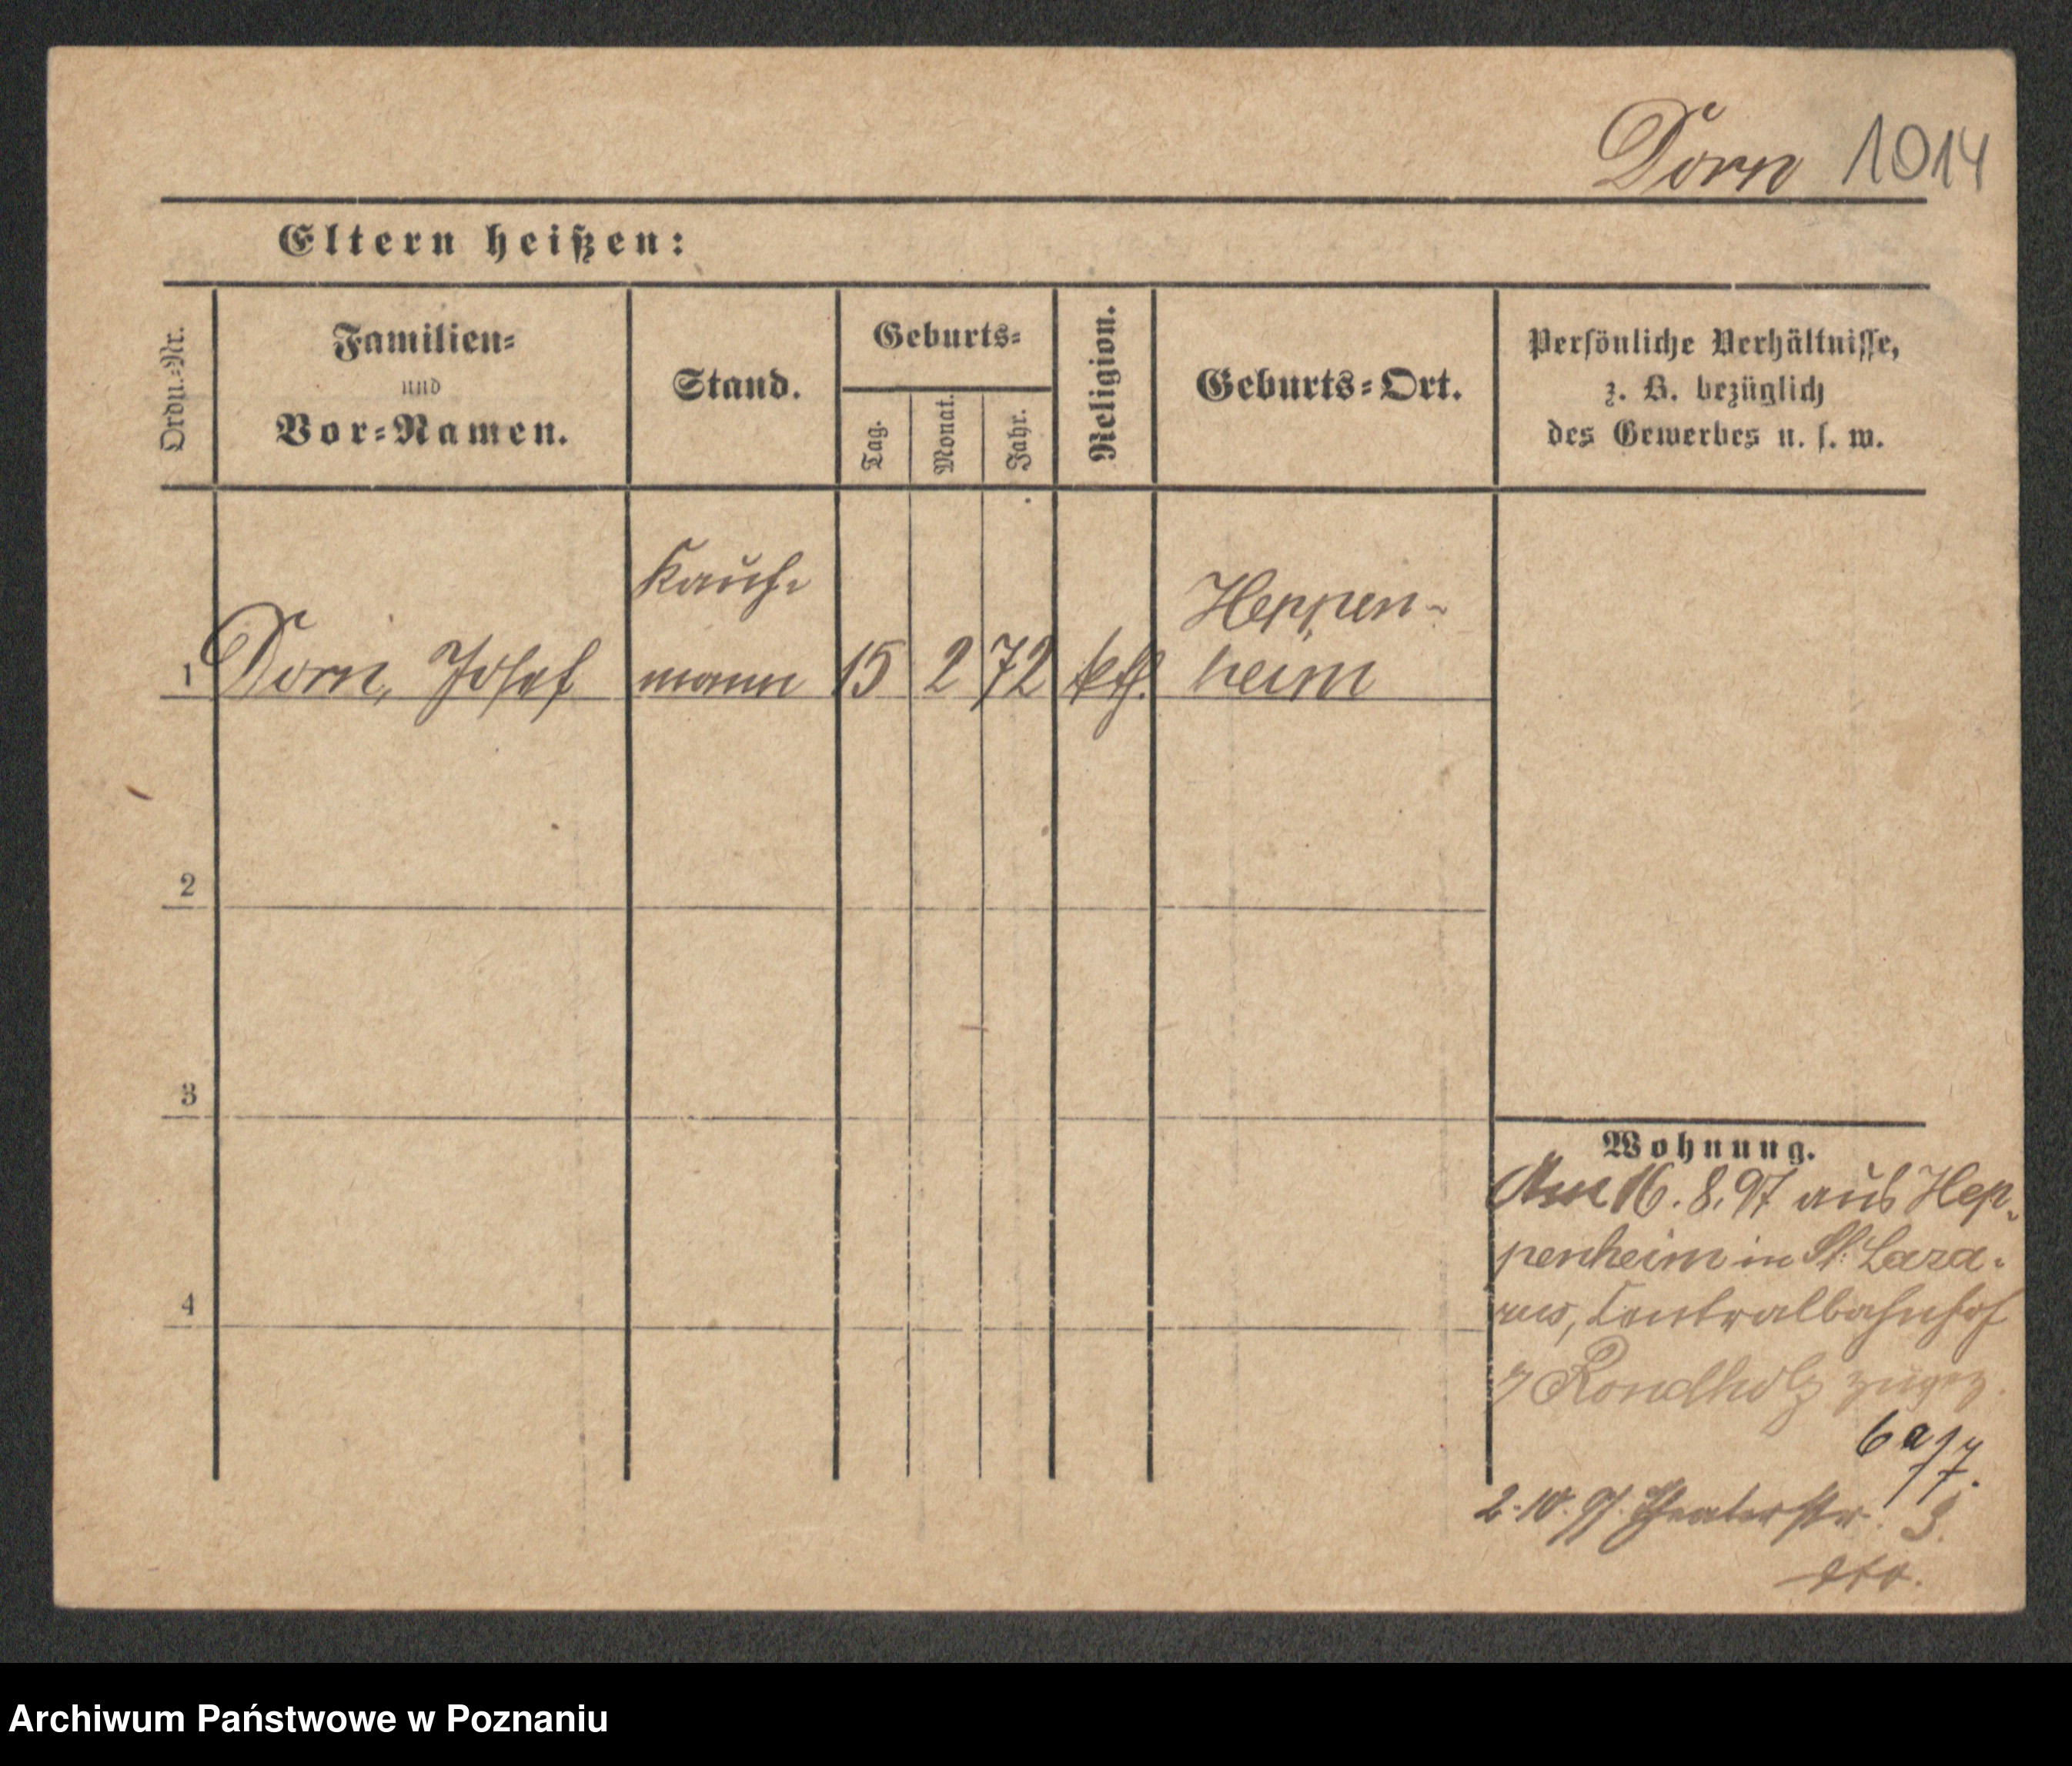 Dorn 1014
Eltern heißen:
Ordn.=Nr.
Familien=
und
Vor=Namen.
Stand.
Geburts=
Tag.
Monat.
Jahr.
Religion.
Geburts=Ort.
Persönliche Verhältnisse,
z. B. bezüglich
des Gewerbes u. s. w.
Kauf-
Heppen-
1 Dorn, Josef mann 15 2 72 kth. heim
2
3
Wohnung.
Am 16.8.97 aus Hep-
penheim in St. Laza-
4
rus, Centralbahnhof
Rondholz zugez.
6a/7.
2.10.97. Theaterstr. 3.
dto.
Archiwum Państwowe w Poznaniu